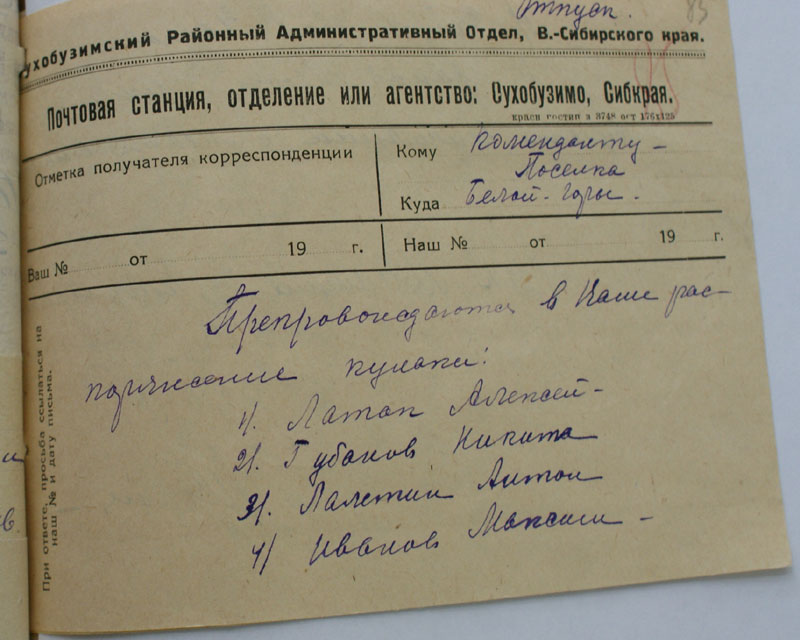 Отпуск. 83
Сухобузимский Районный Административный Отдел, В.-Сибирского края.
Почтовая станция, отделение или агентство: Сухобузимо, Сибкрая.
красн гостип з 3748 ост 176х125
Отметка получателя корреспонденции
Кому Коменданту-
Поселка
Куда Белой-Горы.
Ваш № от 19 г. Наш № от 19 г.
Препровождаются в Ваше рас-
поряжение кулаки:
1). Латоп Алексей-
2). Губанов Никита
3). Палетин Антон
4) Иванов Максим -
При ответе, просьба ссылаться на
наш № и дату письма.